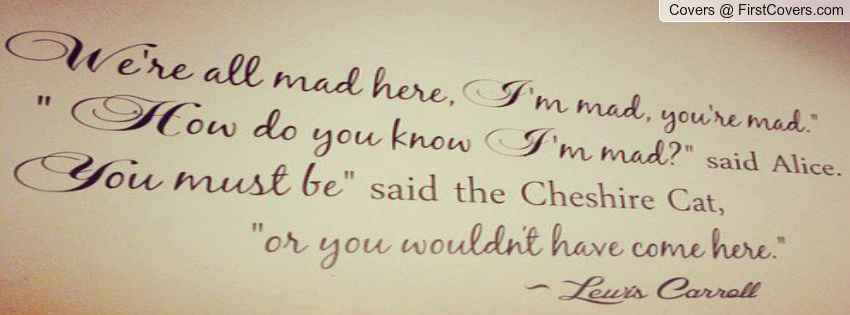 Covers @ FirstCovers.com
We're all mad here, I'm mad, you're mad."
" How do you know I'm mad?" said Alice.
You must be" said the Cheshire Cat,
"or you wouldn't have come here."
~ Lewis Carroll